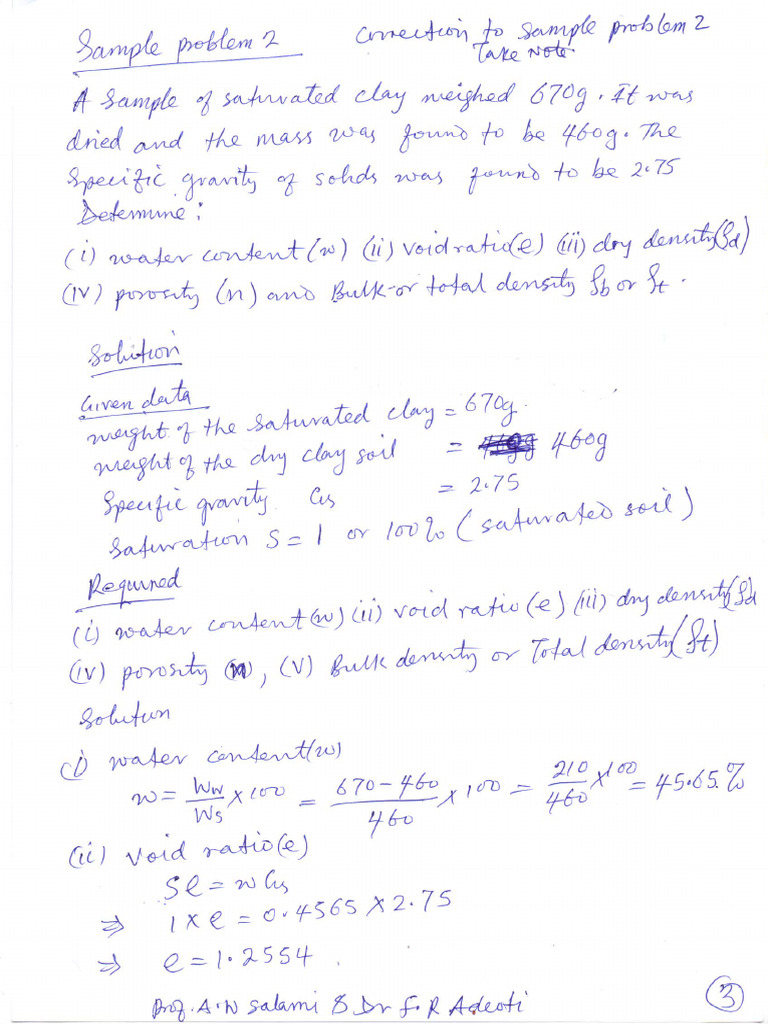 Sample problem 2
Correction to Sample problem 2
Take Note.
A sample of saturated clay weighed 670g. It was
dried and the mass was found to be 460g. The
Specific gravity of solids was found to be 2.75
Determine:
(i) water content (w) (ii) void ratio(e) (iii) dry density(ρd)
(iv) porosity (n) and Bulk-or total density ρb or ρt.
Solution
Given data
weight of the saturated clay = 670g.
weight of the dry clay soil = 460g
Specific gravity Gs = 2.75
Saturation S = 1 or 100% (saturated soil)
Required
(i) water content(w) (ii) void ratio(e) (iii) dry density(ρd)
(iv) porosity (n), (v) Bulk density or Total density(ρt)
Solution
(i) water content(w)
w = Ww/Ws × 100 = 670-460/460 × 100 = 210/460 × 100 = 45.65%
(ii) void ratio(e)
Se = wGs
⇒ 1 × e = 0.4565 × 2.75
⇒ e = 1.2554.
Prof. A.W Salami & Dr F.R Adeoti
3